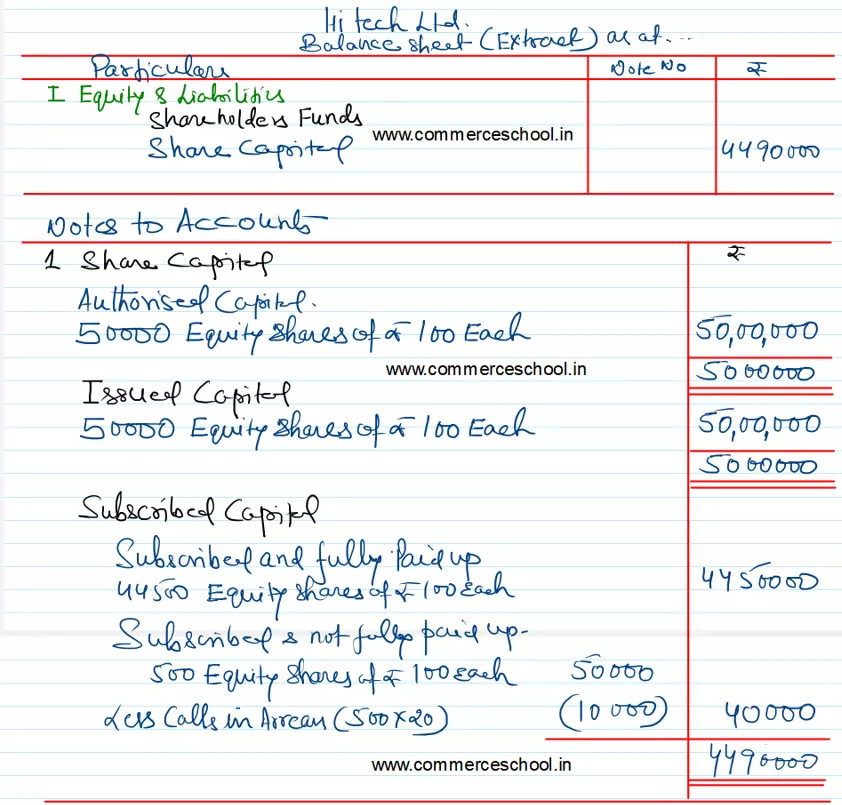 Hi tech Ltd.
Balance sheet (Extract) as at....
Particulars Note No ₹
I Equity & Liabilities
Shareholders Funds
www.commerceschool.in
Share Capital 4490000
Notes to Accounts
1 Share Capital ₹
Authorised Capital.
50000 Equity Shares of ₹ 100 Each 50,00,000
www.commerceschool.in 5000000
Issued Capital
50000 Equity Shares of ₹ 100 Each 50,00,000
5000000
Subscribed Capital
Subscribed and fully Paid up
44500 Equity Shares of ₹ 100 Each 4450000
Subscribed & not fully paid up-
500 Equity Shares of ₹ 100 each 50000
Less Calls in Arrear (500x20) (10000) 40000
www.commerceschool.in 4490000